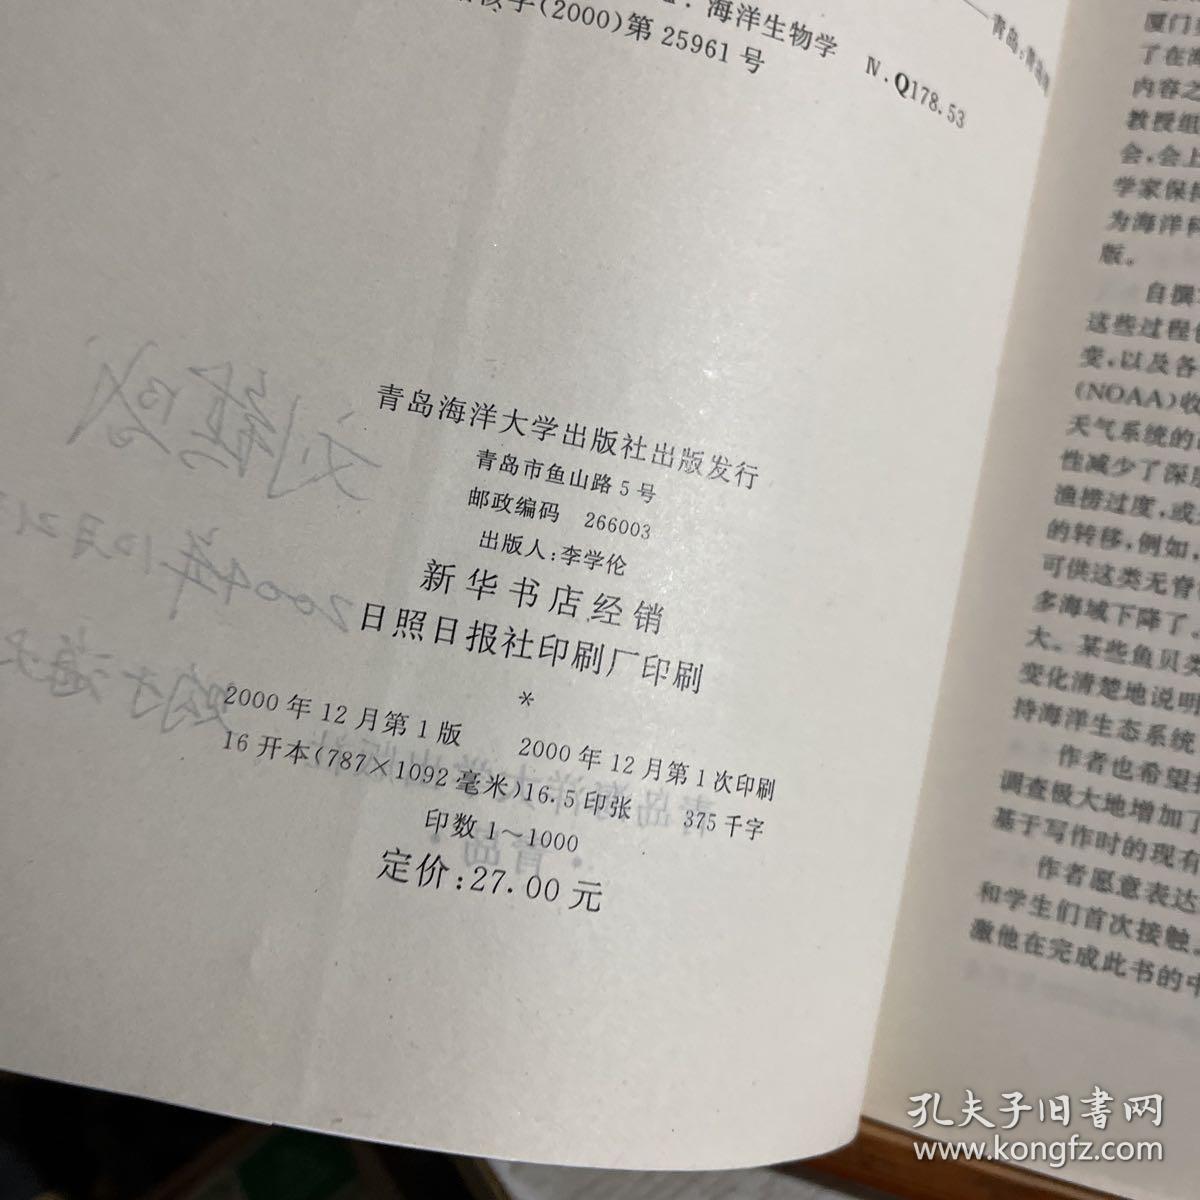 —青岛:青岛海
海洋生物学 Ⅳ.Q178.53
字(2000)第 25961 号
青岛海洋大学出版社出版发行
青岛市鱼山路 5 号
邮政编码 266003
出版人:李学伦
新华书店经销
日照日报社印刷厂印刷
*
2000 年 12 月第 1 版 2000 年 12 月第 1 次印刷
16 开本(787×1092 毫米)16.5 印张 375 千字
印数 1~1000
定价:27.00 元
2004年10月21
青岛海洋大学出版社
·青岛·
厦门
了在海
内容之
教授组
会,会上
学家保持
为海洋科
版。
自撰
这些过程
变,以及各
(NOAA)收
天气系统的
性减少了深层
渔捞过度,或
的转移,例如,
可供这类无脊
多海域下降了
大。某些鱼贝类
变化清楚地说明
持海洋生态系统
作者也希望
调查极大地增加了
基于写作时的现有
作者愿意表达
和学生们首次接触
激他在完成此书的中
孔夫子旧书网
www.kongfz.com